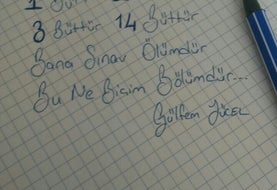 3 Büttür 14 Büttür
Bana Sınav Ölümdür
Bu Ne Biçim Bölümdür...
Gülfem YÜCEL